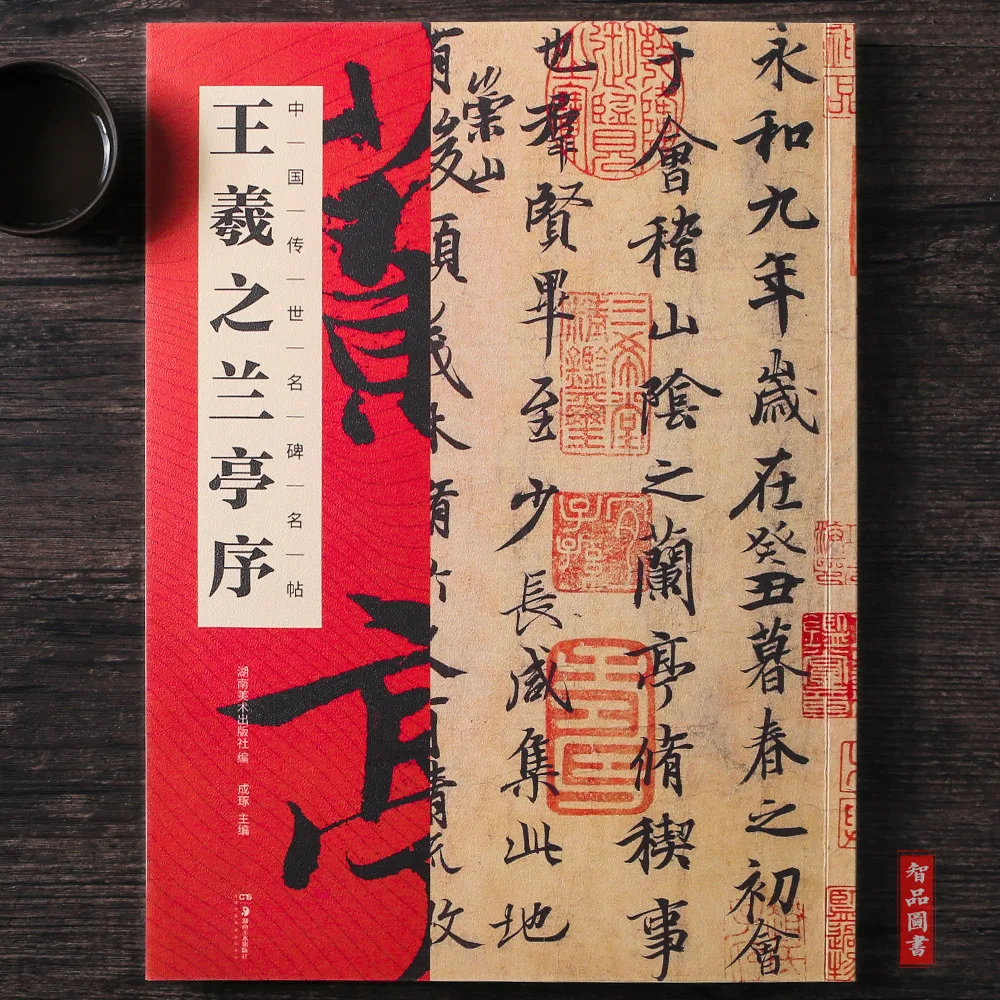 王羲之兰亭序
中国传世名碑名帖
湖南美术出版社 编 成琢 主编
永和九年歲在癸丑暮春之初會
于會稽山陰之蘭亭脩稧事
也羣賢畢至少長咸集此地
崇山
領茂林脩竹又有清流
三希堂精鑑璽
宜子孫
湖南美术出版社
智品圖書